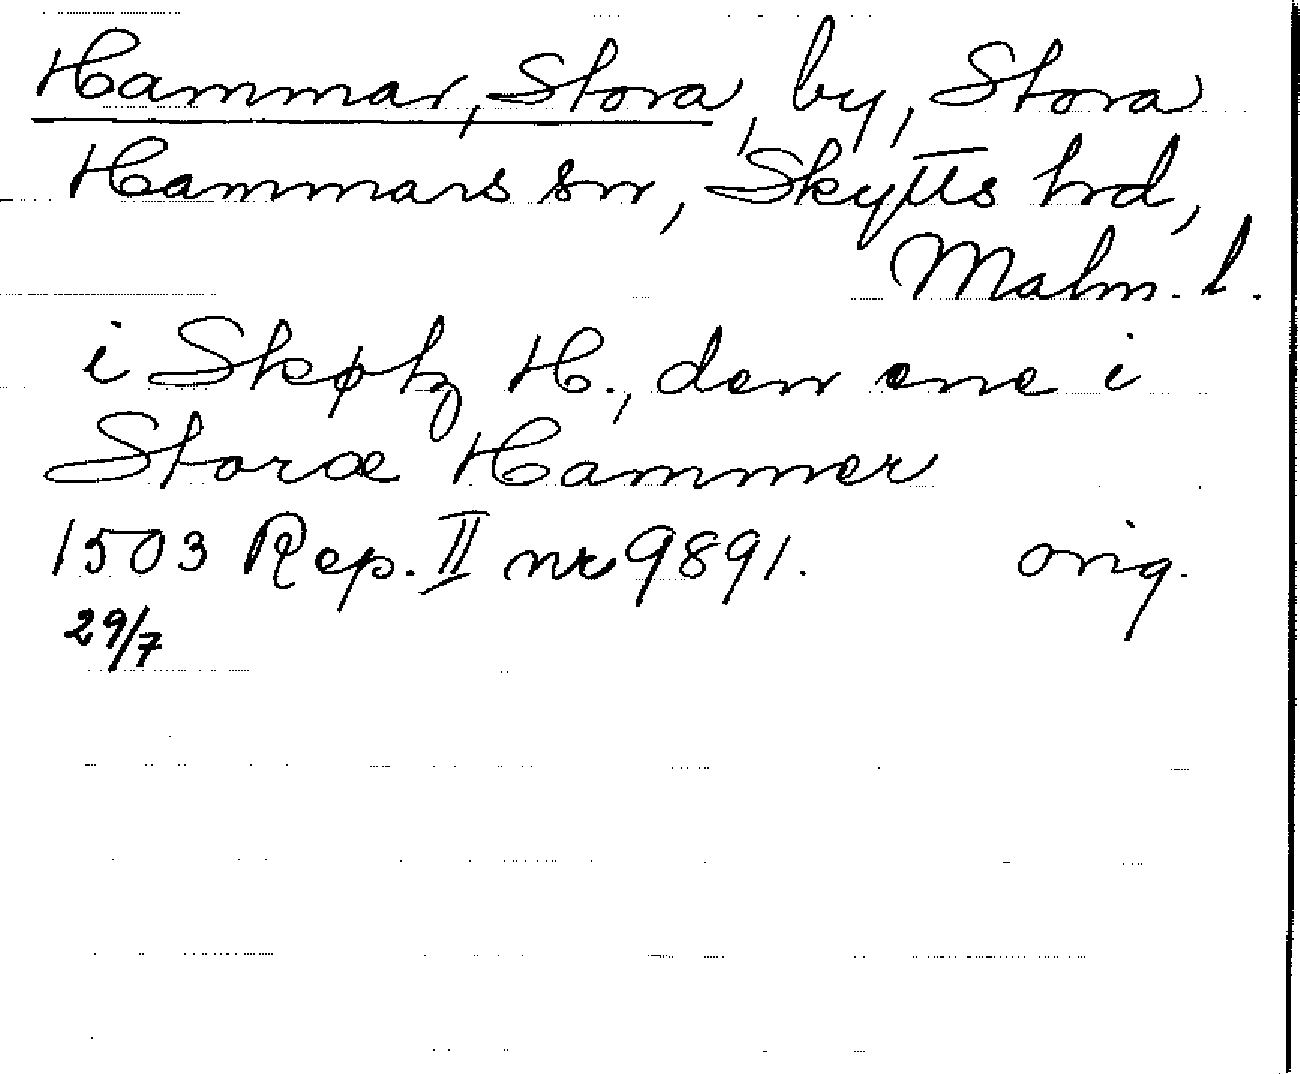 Hammar, Stora, by, Stora
Hammars sn, Skytts hd,
Malm. l.
i Skøtz H., den ene i
Storæ Hammer
1503 Rep. II nr 9891. orig.
29/7